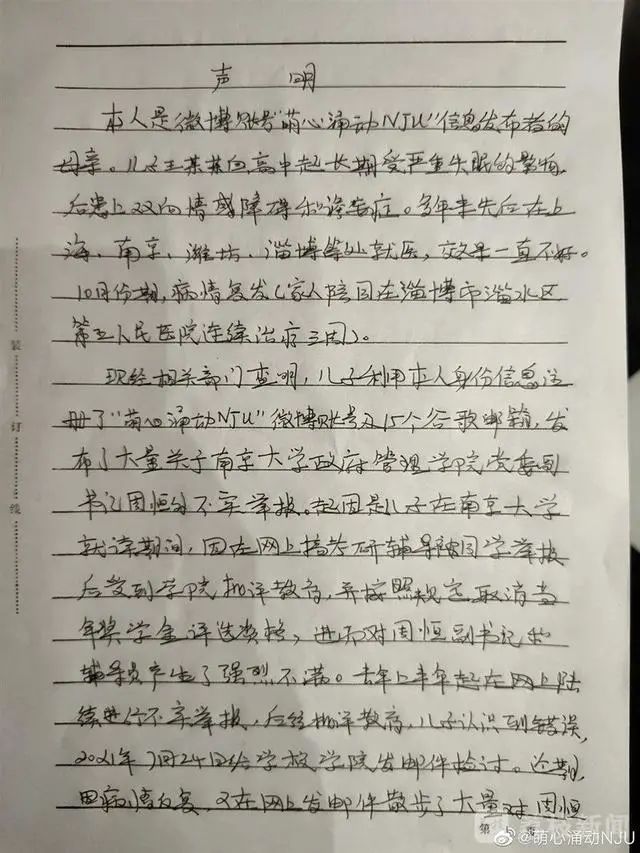 声 明
本人是微博账号"萌心涌动NJU"信息发布者的
母亲。儿子王某某自高中起长期受严重失眠的影响,
后患上双向情感障碍和语言症。多年来先后在上
海、南京、潍坊、淄博等处就医,效果一直不好。
10月份期,病情复发(家人陪同在淄博市淄水区
第五人民医院连续治疗三周)。
现经相关部门查明,儿子利用本人身份信息注
册了"萌心涌动NJU"微博账号及15个谷歌邮箱,发
布了大量关于南京大学政府管理学院党委副
书记周恒的不实举报。起因是儿子在南京大学
就读期间,因在网上搞考研辅导被同学举报
后受到学院批评教育,并按照规定取消当
年奖学金评选资格,进而对周恒副书记和
辅导员产生了强烈不满。去年上半年起在网上陆
续进行不实举报,后经批评教育,儿子认识到错误,
2021年7月24日给学校学院发邮件检讨。近期,
因病情反复,又在网上发邮件散步了大量对周恒
装
订
线
第 页
@萌心涌动NJU